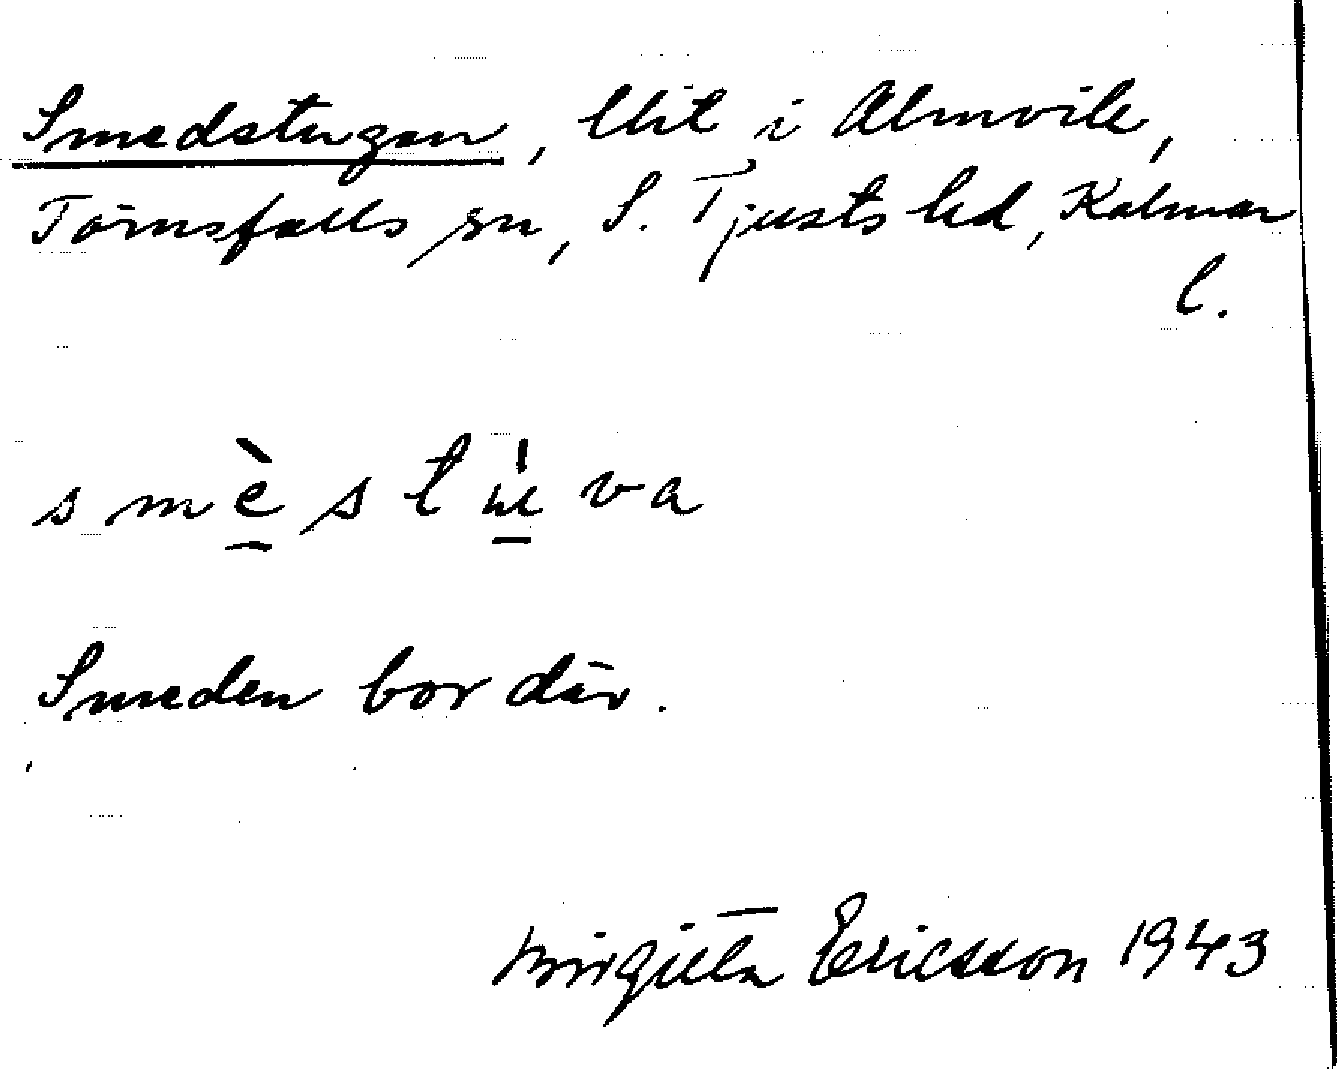 Smedstugan, lht i Almvik,
Törnsfalls sn, S. Tjusts hd, Kalmar
l.
smè̱stu̱̍va
Smeden bor där.
Birgitta Ericsson 1943